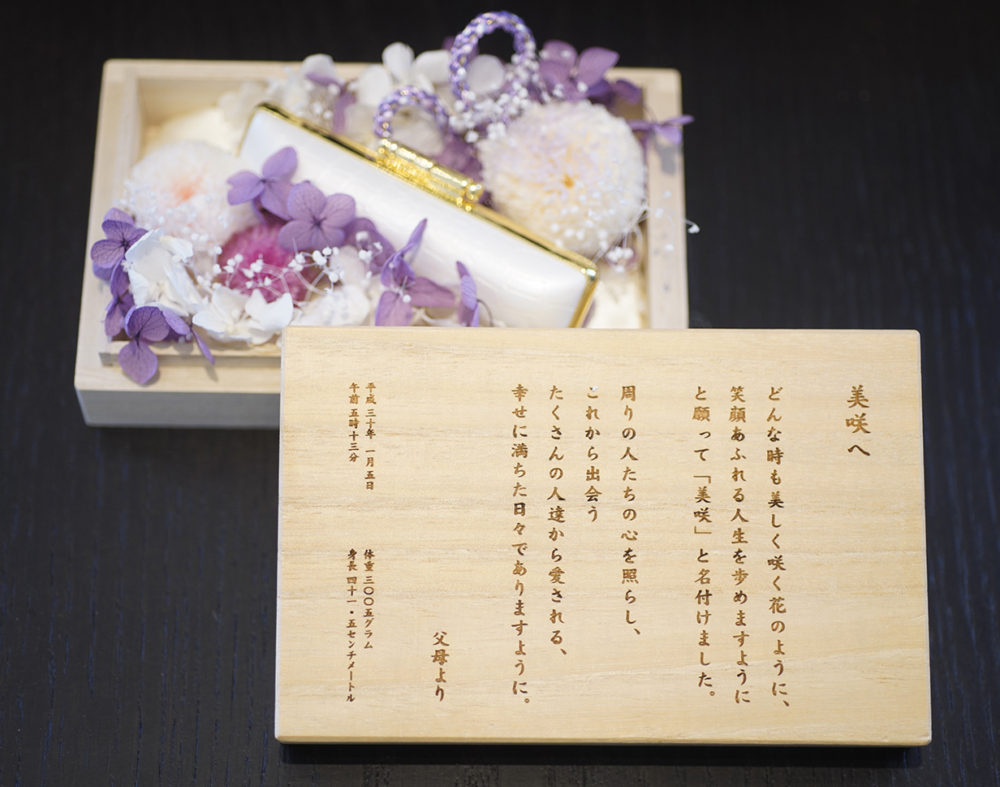 美咲へ
どんな時も美しく咲く花のように、
笑顔あふれる人生を歩めますように
と願って「美咲」と名付けました。
周りの人たちの心を照らし、
これから出会う
たくさんの人達から愛される、
幸せに満ちた日々でありますように。
父母より
平成三十年 一月五日
午前五時十三分
体重 三〇〇五グラム
身長 四十一・五センチメートル